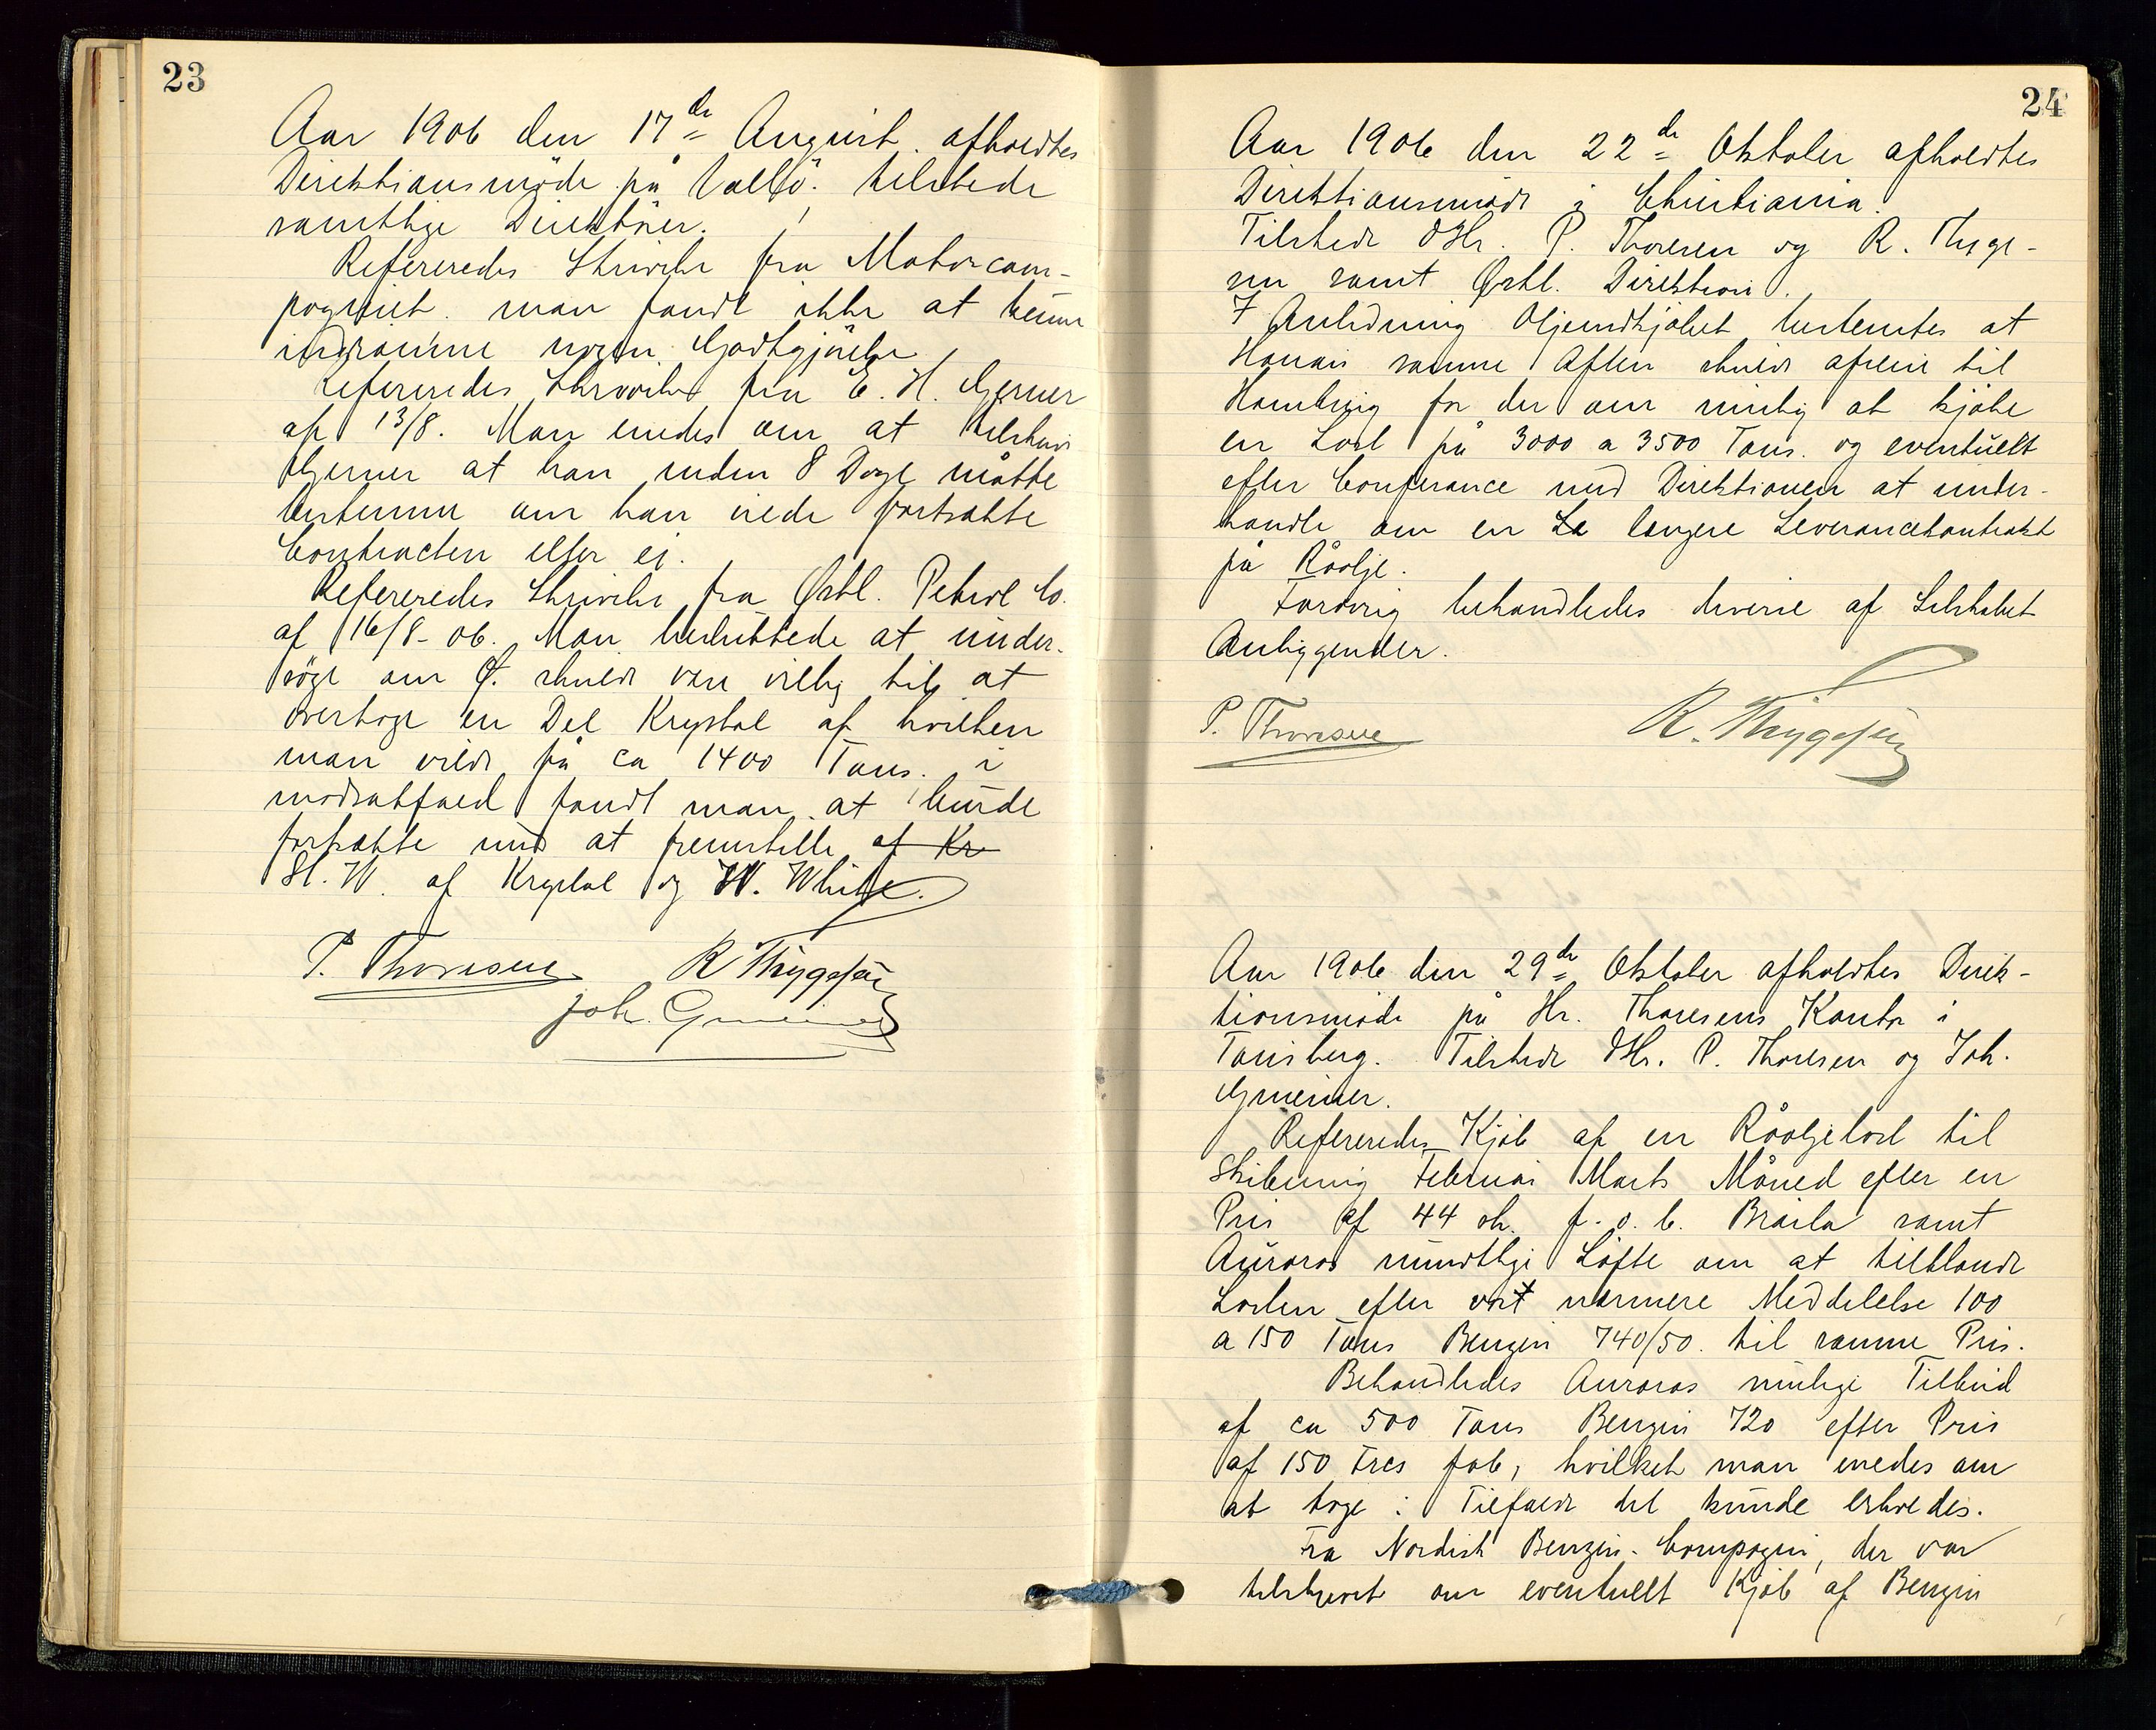 23
Aar 1906 den 17de August. afholdtes
Direktionsmöde på Vallö. tilstede
samtlige Direktörer.
Refereredes Skrivelse fra Motorcom-
pagniet. man fandt ikke at kunne
indrömme nogen Godtgjörelse
Refereredes Skrivelse fra E. H. Gerner
af 13/8. Man enedes om at tilskrive
Gerner at han inden 8 Dage måtte
bestemme om han vilde fortsætte
Contracten eller ei.
Refereredes Skrivelse fra Østl. Petrol Co.
af 16/8-06. Man besluttede at under-
söge om Ø. skulde være villig til at
overtage en Del Krystal af hvilken
man vilde få ca 1400 Tons. i
modsatfald fandt man at burde
fortsætte med at fremstille af Kr
St. W. af Krystal og W. White.
P. Thoresen R Thygesen
Joh. Gmeiner
24
Aar 1906 den 22de Oktober afholdtes
Direktionsmöde i Christiania.
Tilstede DHr. P. Thoresen og R. Thyge-
sen samt Østl. Direktion.
I Anledning Oljeindkjöbet bestemtes at
samme Aften skulde afreise til
Hamburg for der om mulig at kjöbe
en Last på 3000 a 3500 Tons. og eventuelt
efter Conferance med Direktionen at under-
handle om en Le længere Leverancekontrakt
på Råolje.
Forövrig behandledes diverse af Selskabet
Anliggender.
P. Thoresen R. Thygesen
Aar 1906 den 29de Oktober afholdtes Direk-
tionsmöde på Hr. Thoresens Kontor i
Tönsberg. Tilstede DHr. P. Thoresen og Joh.
Gmeiner.
Refereredes Kjöb af en Råoljelast til
Skibning Februar Marts Måned efter en
Pris af 44 sh. f.o.b. Braila samt
Auroras mundtlige Löfte om at tilblande
Lasten efter vort nærmere Meddelelse 100
a 150 Tons Benzin 740/50. til samme Pris.
Behandledes Auroras mulige Tilbud
af ca 500 Tons Benzin 720 efter Pris
af 150 Frcs fob, hvilket man enedes om
at tage i Tilfælde det kunde erholdes.
Fra Nordisk Benzin-Compagni, der var
tilskrevet om eventuelt Kjöb af Benzin